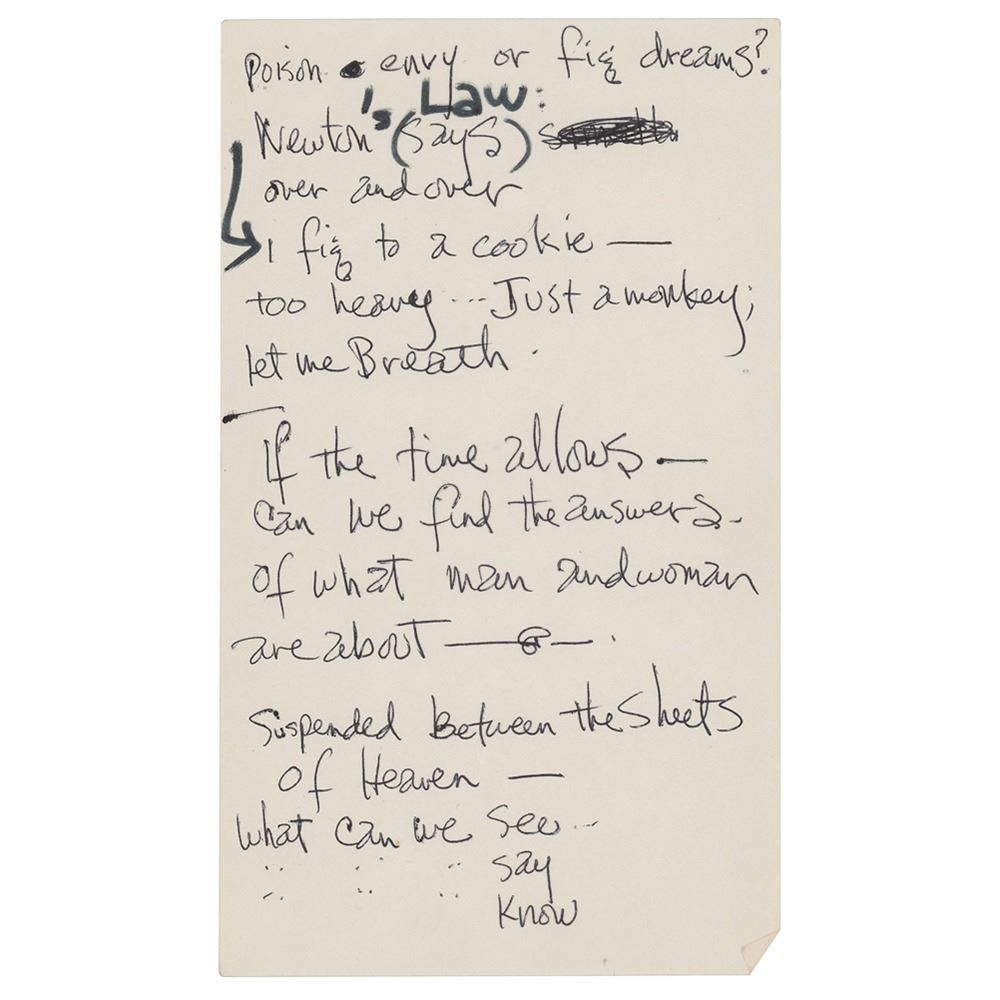 Poison envy or fig dreams?
's Law:
Newton (says)
over and over
1 fig to a cookie —
too heavy --- Just a monkey;
let me Breath .
If the time allows —
can we find the answers -
of what man and woman
are about — .
Suspended Between the Sheets
of Heaven —
what can we see...
" " " say
" " " Know